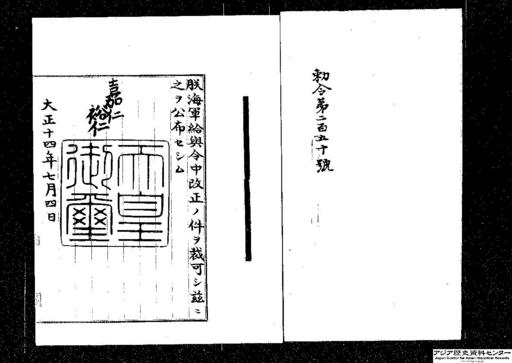 勅令第二百五十號
朕海軍給與令中改正ノ件ヲ裁可シ茲ニ
之ヲ公布セシム
嘉仁
裕仁
天皇
御璽
大正十四年七月四日
アジア歴史資料センター
Japan Center for Asian Historical Records